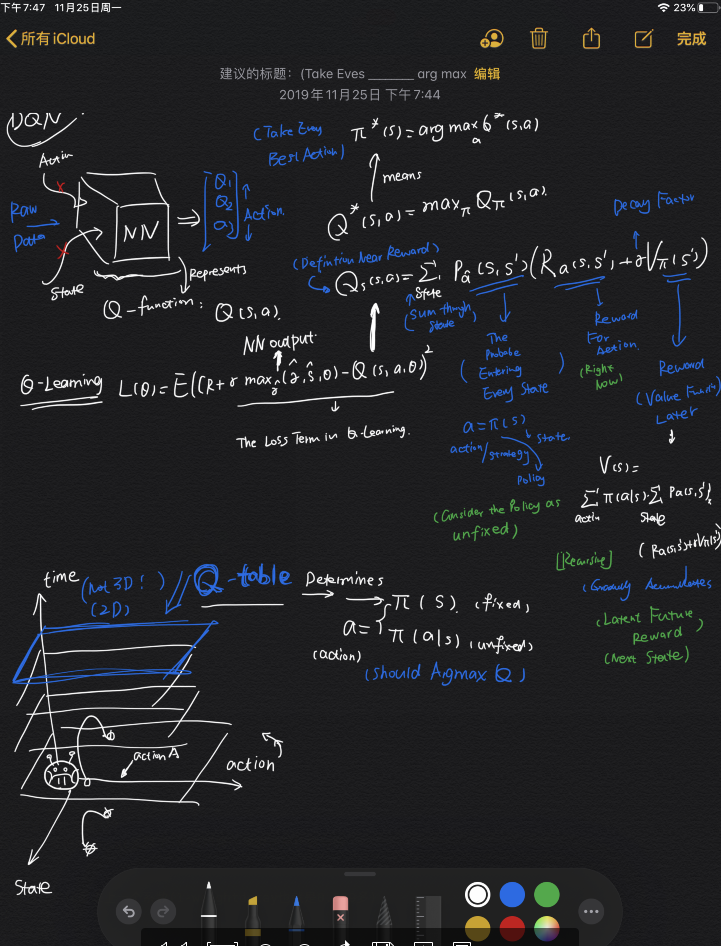 下午7:47 11月25日周一
23%
所有 iCloud
完成
建议的标题：(Take Eves _______ arg max 编辑
2019年11月25日 下午7:44
DQN
Action
Raw
Data
State
NN
Q1
Q2
Action
Represents
Q-function: Q(s,a)
(Take Every
Best Action)
π*(s) = argmax_a Q*(s,a)
means
Q*(s,a) = max_π Q_π(s,a)
(Definition Near Reward)
Decay Factor
State
(Sum though
State)
The
Entering
Every State
Reward
For
Action.
(Right
Now)
Reward
(Value Function)
Later
NN output.
Q-Learning
The Loss Term in Q-Learning.
a=π(s)
action/strategy
State
Policy
(Consider the Policy as
unfixed)
V(s)=
action
State
[Recursing]
(Latent Future
Reward)
(Next State)
time
(not 3D!)
(2D)
Q-table
Determines
a=
π(s). (fixed)
π(a|s) (unfixed)
(action)
(Should Argmax Q)
action A
action
State